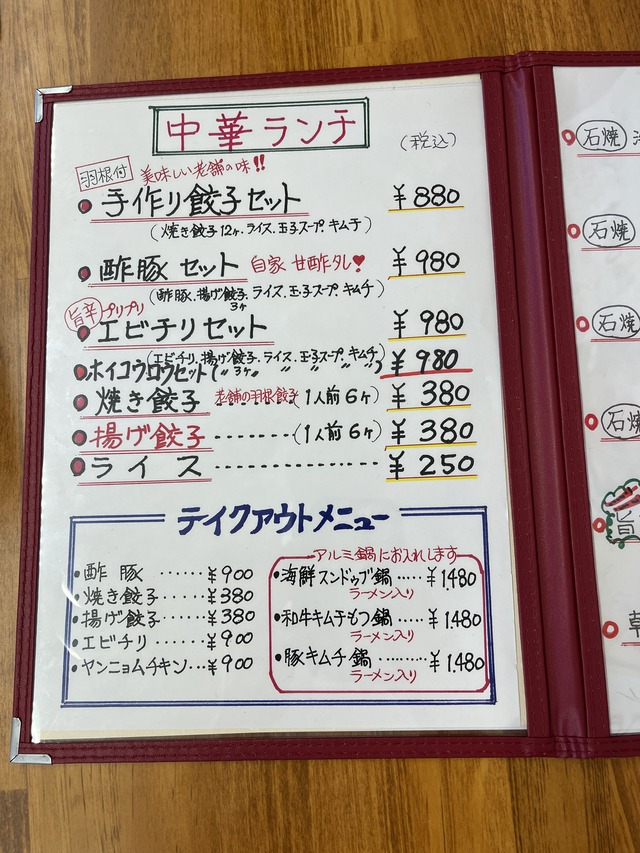 中華ランチ
(税込)
羽根付 美味しい老舗の味!!
手作り餃子セット ¥880
(焼き餃子12ヶ.ライス.玉子スープ キムチ)
酢豚 セット 自家 甘酢タレ♥ ¥980
(酢豚.揚げ餃子.ライス.玉子スープ キムチ)
3ヶ
旨辛 プリプリ
エビチリセット ¥980
(エビチリ.揚げ餃子.ライス.玉子スープ.キムチ)
ホイコウロウセット(〃 3ヶ 〃 〃 〃 〃) ¥980
焼き餃子 老舗の羽根餃子 (1人前6ヶ) ¥380
揚げ餃子-------(1人前6ヶ) ¥380
ライス-------------- ¥250
テイクアウトメニュー
・酢豚 ······¥900
・焼き餃子·····¥380
・揚げ餃子·····¥380
・エビチリ·····¥900
・ヤンニョムチキン···¥900
アルミ鍋にお入れします
・海鮮スンドゥブ鍋·····¥1.480
ラーメン入り
・和牛キムチもつ鍋····¥1480
ラーメン入り
・豚キムチ鍋·········¥1.480
ラーメン入り
石焼
石焼
石焼
石焼
旨